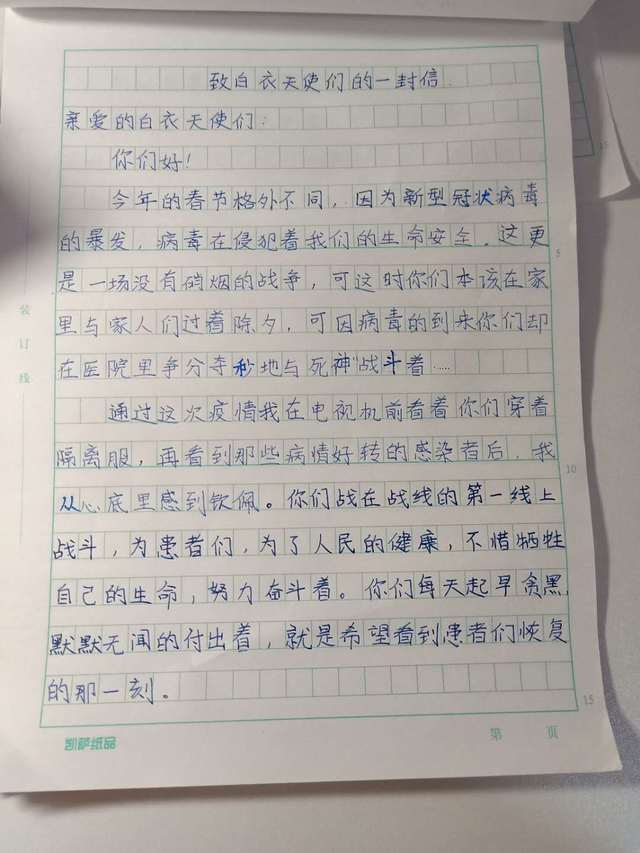 致白衣天使们的一封信.
亲爱的白衣天使们:
你们好!
今年的春节格外不同,因为新型冠状病毒
的暴发,病毒在侵犯着我们的生命安全.这更
是一场没有硝烟的战争,可这时你们本该在家
里与家人们过着除夕,可因病毒的到来你们却
在医院里争分夺秒地与"死神"战斗着……
通过这次疫情我在电视机前看着你们穿着
隔离服,再看到那些病情好转的感染者后,我
从心底里感到钦佩。你们战在战线的第一线上
战斗,为患者们,为了人民的健康,不惜牺牲
自己的生命,努力奋斗着。你们每天起早贪黑,
默默无闻的付出着,就是希望看到患者们恢复
的那一刻。
装订线
5
10
15
凯萨纸品
第 页
15